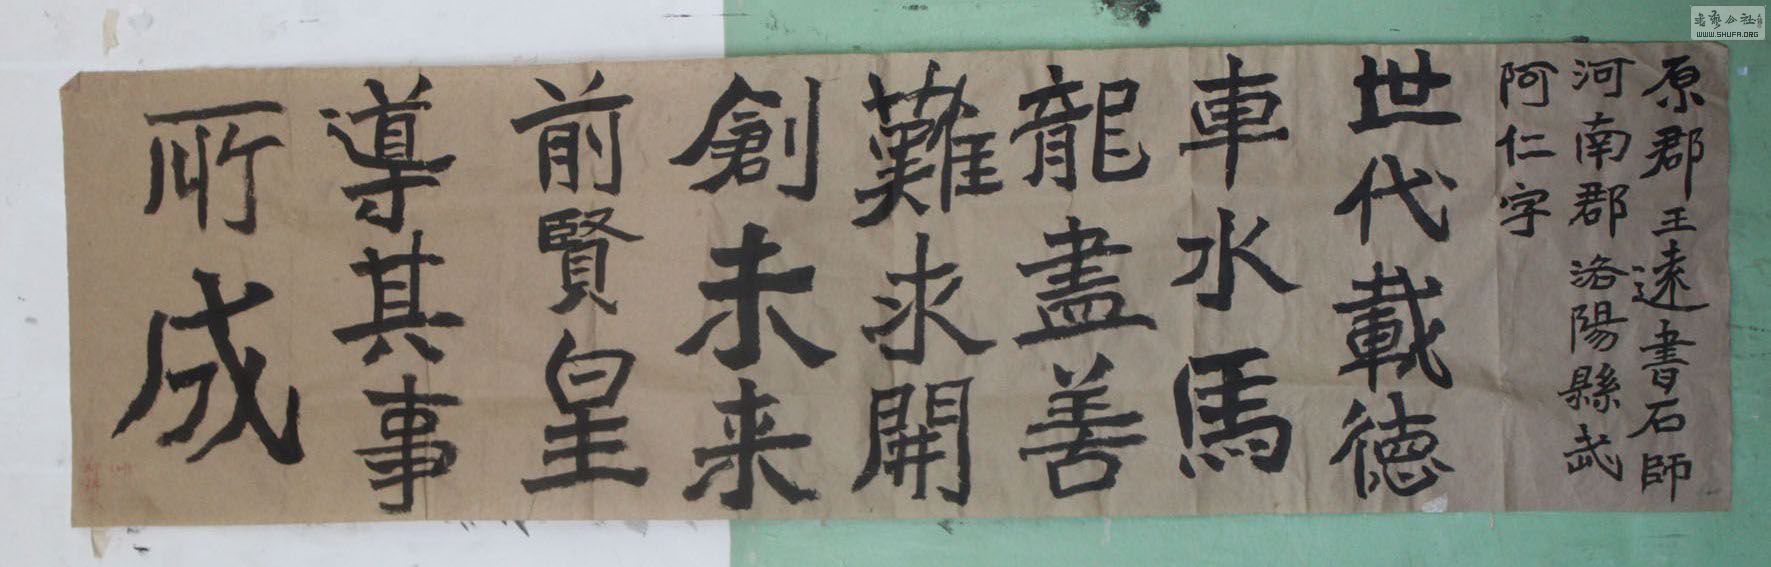 原郡王遠書石師
河南郡洛陽縣武
阿仁字
世代載德
車水馬
龍盡善
難求開
創未来
前賢皇
導其事
所成
WWW.SHUFA.ORG